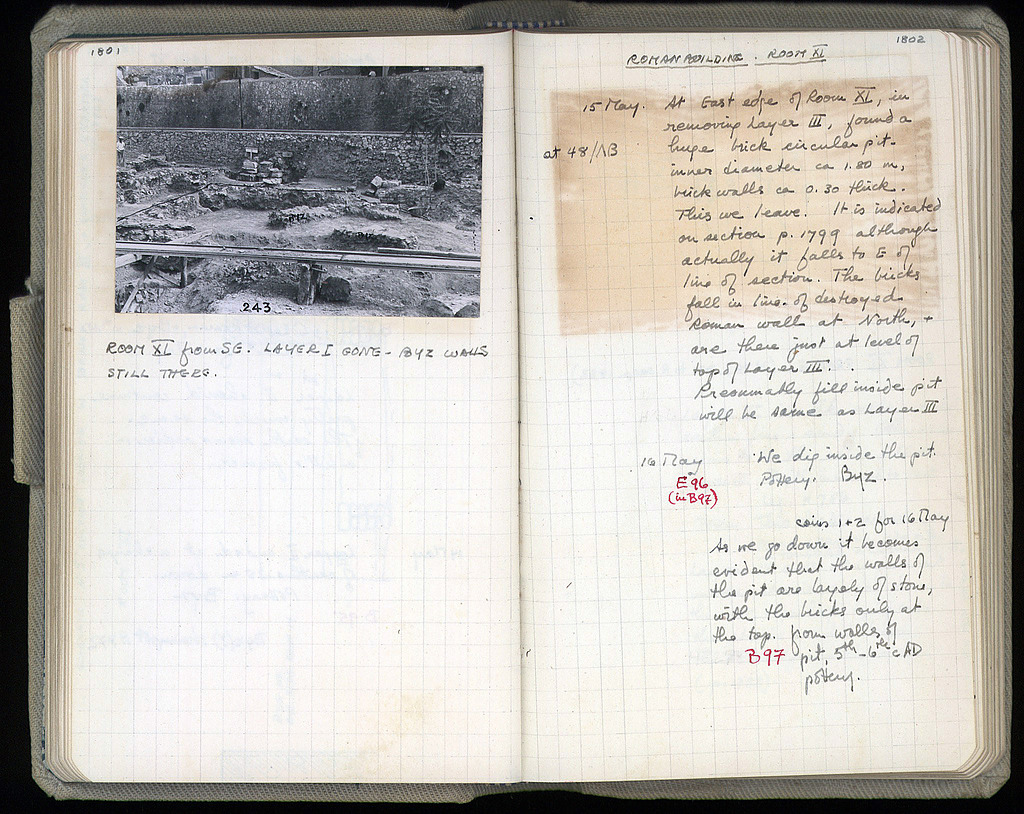 1801
243
ROOM XI from SE. LAYER I GONE - BYZ WALLS
STILL THERE.
1802
ROMAN BUILDING. ROOM XI
15 May. At East edge of Room XI, in
removing Layer III, found a
at 48/ΛB huge brick circular pit.
inner diameter ca 1.80 m,
brick walls ca 0.30 thick.
This we leave. It is indicated
on section p. 1799 although
actually it falls to E of
line of section. The bricks
fall in line of destroyed
Roman wall at North, +
are there just at level of
top of Layer III.
Presumably fill inside pit
will be same as Layer III
16 May We dig inside the pit.
E96 Pottery. Byz.
(in B97)
coins 1+2 for 16 May
As we go down it becomes
evident that the walls of
the pit are largely of stone,
with the bricks only at
the top. From walls of
B97 pit, 5th-6th c AD
pottery.